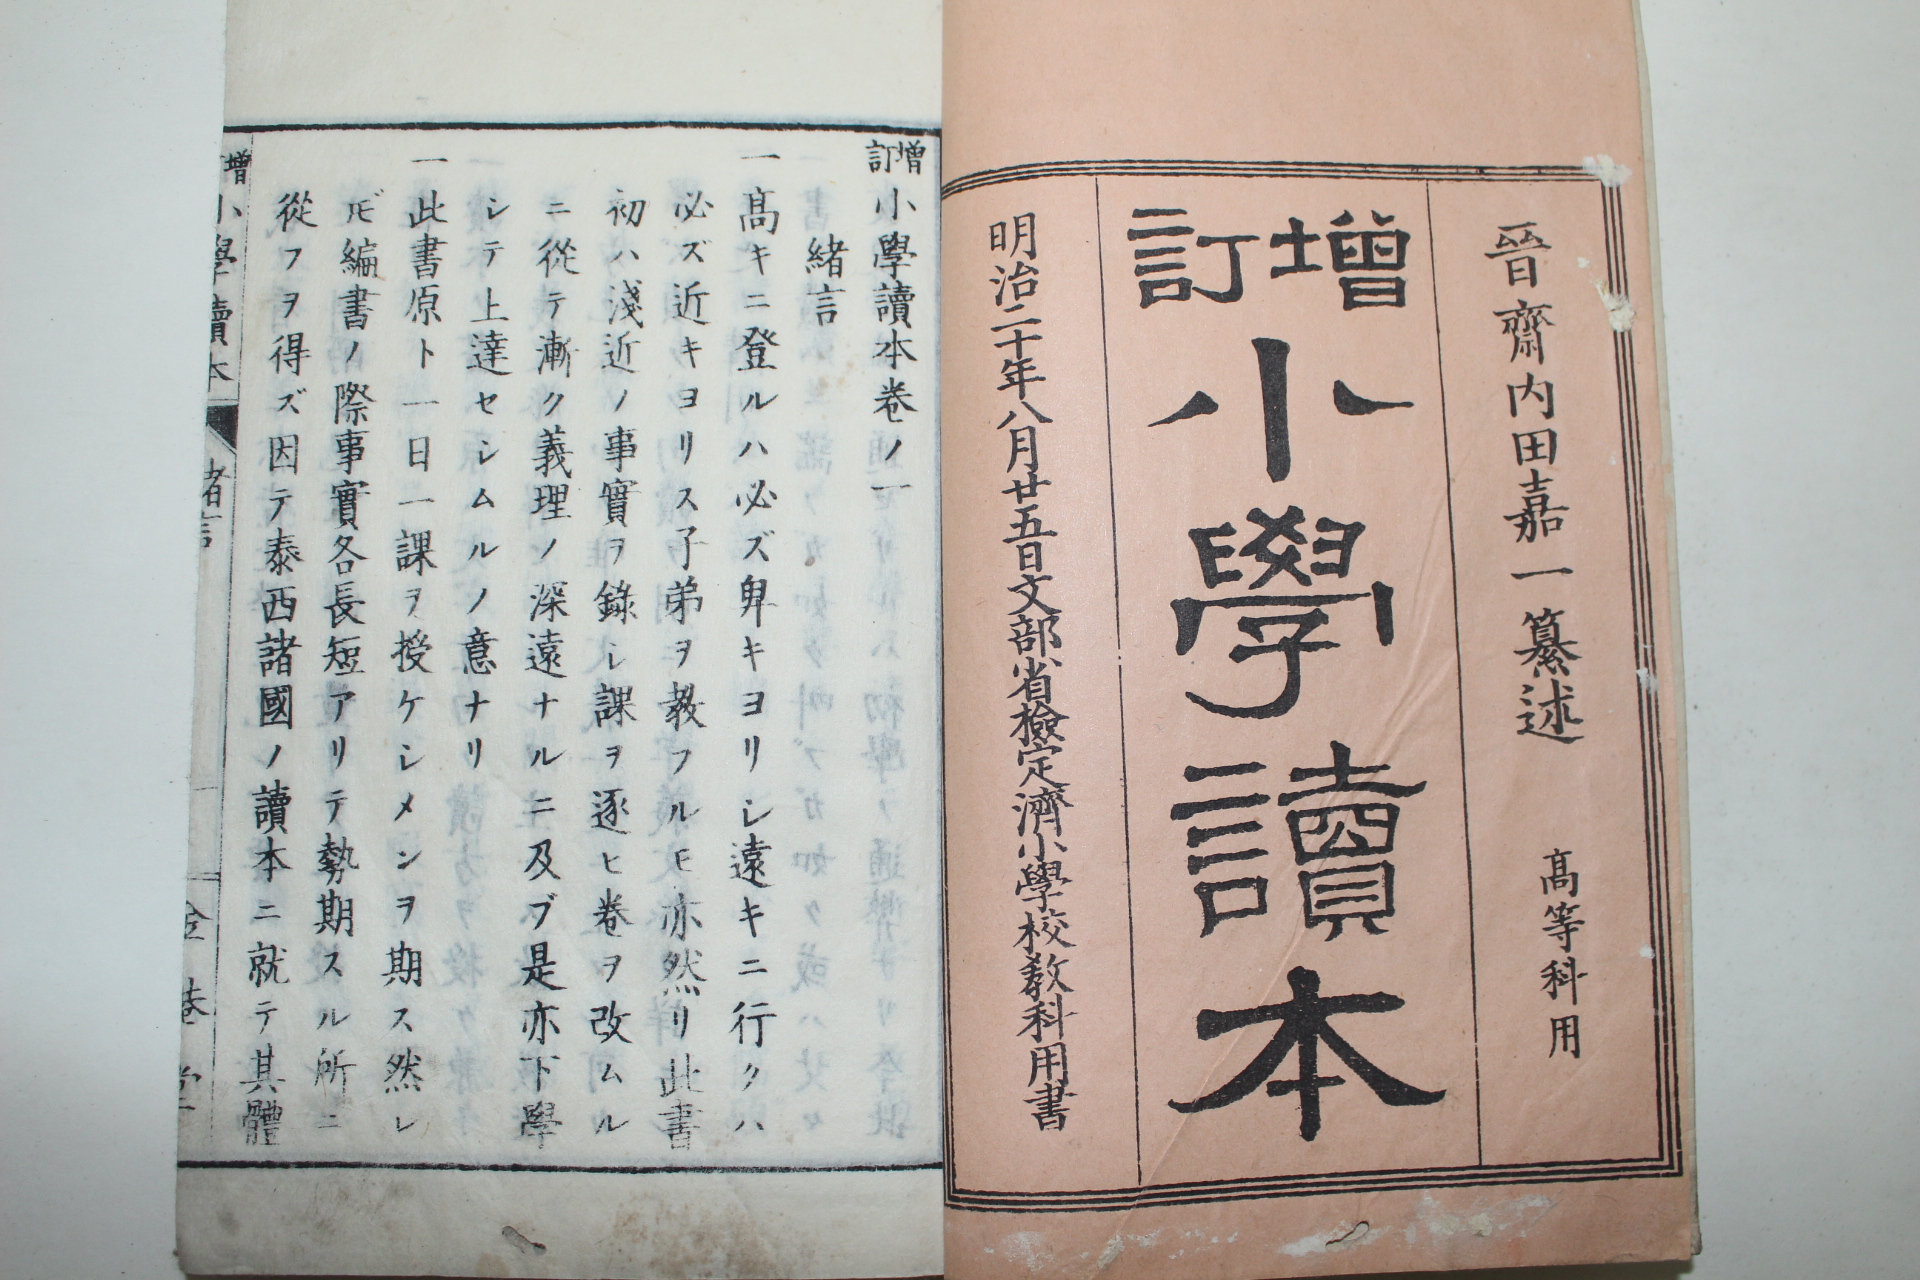 晉齋内田嘉一纂述　高等科用
增訂
小學讀本
明治二十年八月廿五日文部省檢定濟小學校教科用書
增訂小學讀本卷ノ一
緒言
一高キニ登ルハ必ズ卑キヨリシ遠キニ行クハ
必ズ近キヨリス子弟ヲ教フルモ亦然リ此書
初ハ淺近ノ事實ヲ錄シ課ヲ逐ヒ卷ヲ改ムル
ニ從テ漸ク義理ノ深遠ナルニ及ブ是亦下學
シテ上達セシムルノ意ナリ
一此書原ト一日一課ヲ授ケシメンヲ期ス然レ
𪜈編書ノ際事實各長短アリテ勢期スル所ニ
從フヲ得ズ因テ泰西諸國ノ讀本ニ就テ其體
增
小學讀本
緒言
金港堂